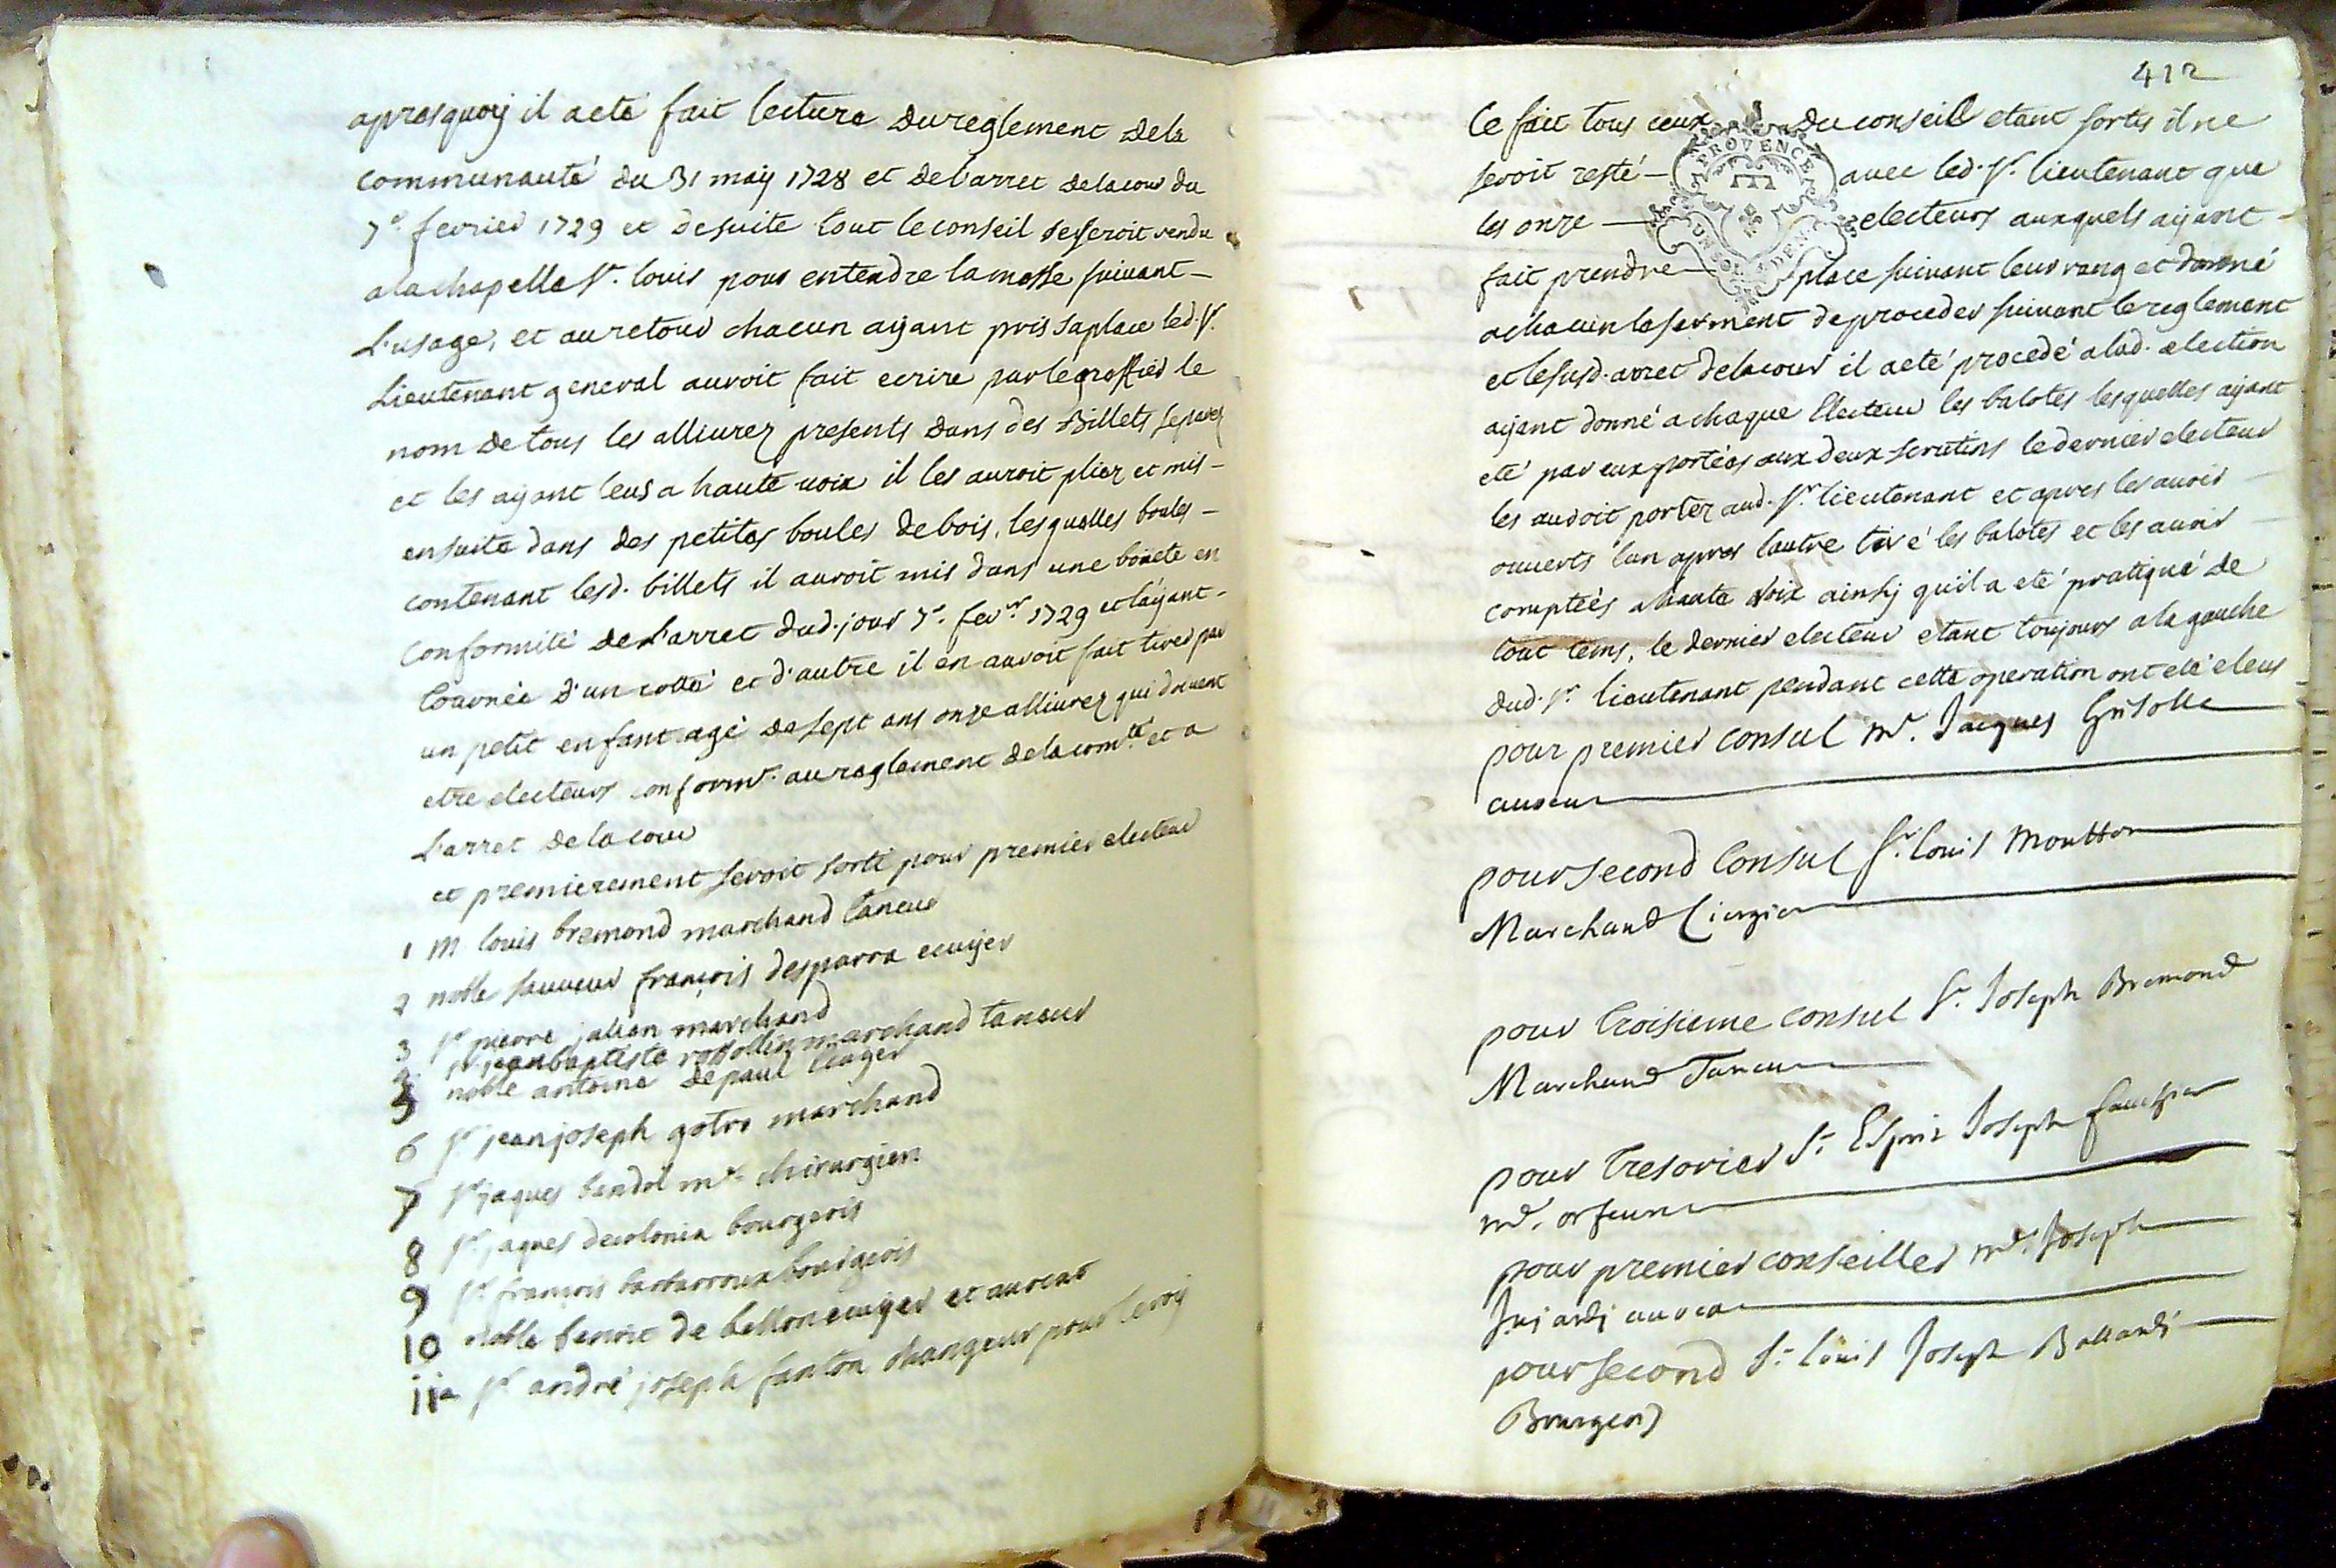 apres quoy il a eté fait lecture du reglement de la
communauté du 31 may 1728 et de l'arret de la cour du
7e. fevrier 1729 et de suite tout le conseil se seroit rendu
a la chapelle St. louis pour entendre la messe suivant
L'usage, et au retour chacun ayant pris sa place led. Sr.
Lieutenant general auroit fait ecrire par le greffier le
nom de tous les allivrez presents dans des Billets separez
et les ayant leus a haute voix il les auroit pliez et mis
ensuite dans des petites boules de bois, lesquelles boules
contenant lesd. billets il auroit mis dans une bouete en
conformité de l'arret dud. jour 7e. fevr. 1729 et l'ayant
tournée d'un cotté et d'autre il en auroit fait tirer par
un petit enfant agé de sept ans onze allivrez qui doivent
etre electeurs conformt. au reglement de la comté. et a
L'arret de la cour
et premierement seroit sorti pour premier electeur
1 M louis bremond marchand taneur
2 noble sauveur françois desparra ecuyer
3 Sr. pierre julien marchand
4 Sr. jean baptiste rossollin marchand taneur
5 noble antoine de paul ecuyer
6 Sr. jean joseph gotro marchand
7 Sr. jaques bandol me. chirurgien
8 Sr. jaques decolonia bourgeois
9 Sr. françois barbarroux bourgeois
10 noble benoit de bellon ecuyer et avocat
11e Sr. andré joseph fanton changeur pour le roy
412
Ce fait tous ceux du conseil etant sortis il ne
PROVENCE
seroit resté avec led. Sr. lieutenant que
les onze electeurs auxquels ayant
fait prendre place suivant leur rang et donné
a chacun le serment de proceder suivant le reglement
et le susd. arret de la cour il a eté procedé a lad. election
ayant donné a chaque Electeur les balotes lesquelles ayant
eté par eux portées aux deux scrutins le dernier electeur
les auroit porter aud. Sr. lieutenant et apres les avoir
ouverts l'un apres l'autre tiré les balotes et les avoir
comptées a haute voix ainsy qu'il a eté pratiqué de
tout tems, le dernier electeur etant toujours a la gauche
dud. Sr. lieutenant pendant cette operation ont eté eleus
pour premier consul Me. Jacques Grisolle
avocat
pour second Consul Sr. Louis Moutton
Marchand Cirgier
pour troisieme consul Sr. Joseph Bremond
Marchand Taneur
pour tresorier Sr. Esprit Joseph
me. orfeuvre
pour premier conseiller Me. Joseph
avocat
pour second Sr. Louis Joseph
Bourgeois